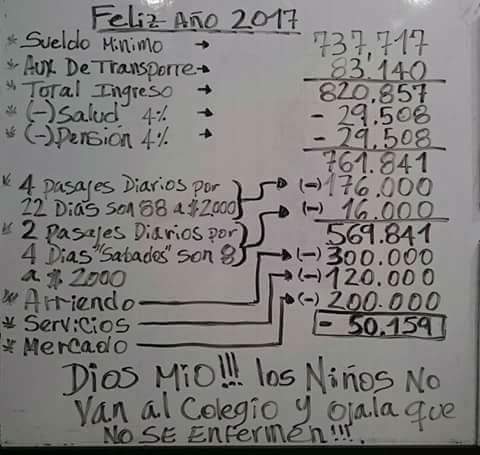 Feliz Año 2017
* Sueldo Minimo → 737,717
* Aux De Transporre → 83.140
* Total Ingreso → 820.857
* (-) Salud 4% → - 29.508
* (-) Pensión 4% → - 29.508
761.841
* 4 pasajes Diarios por (-) 176.000
22 Dias son 88 a $2000 (-) 16.000
* 2 Pasajes Diarios por 569.841
4 Dias "Sabados" son 8 (-) 300.000
a $ 2000 (-) 120.000
* Arriendo (-) 200.000
* Servicios - 50.159
* Mercado
Dios Mio!!! los Niños No
Van al Colegio y Ojala que
NO SE Enfermen!!!.